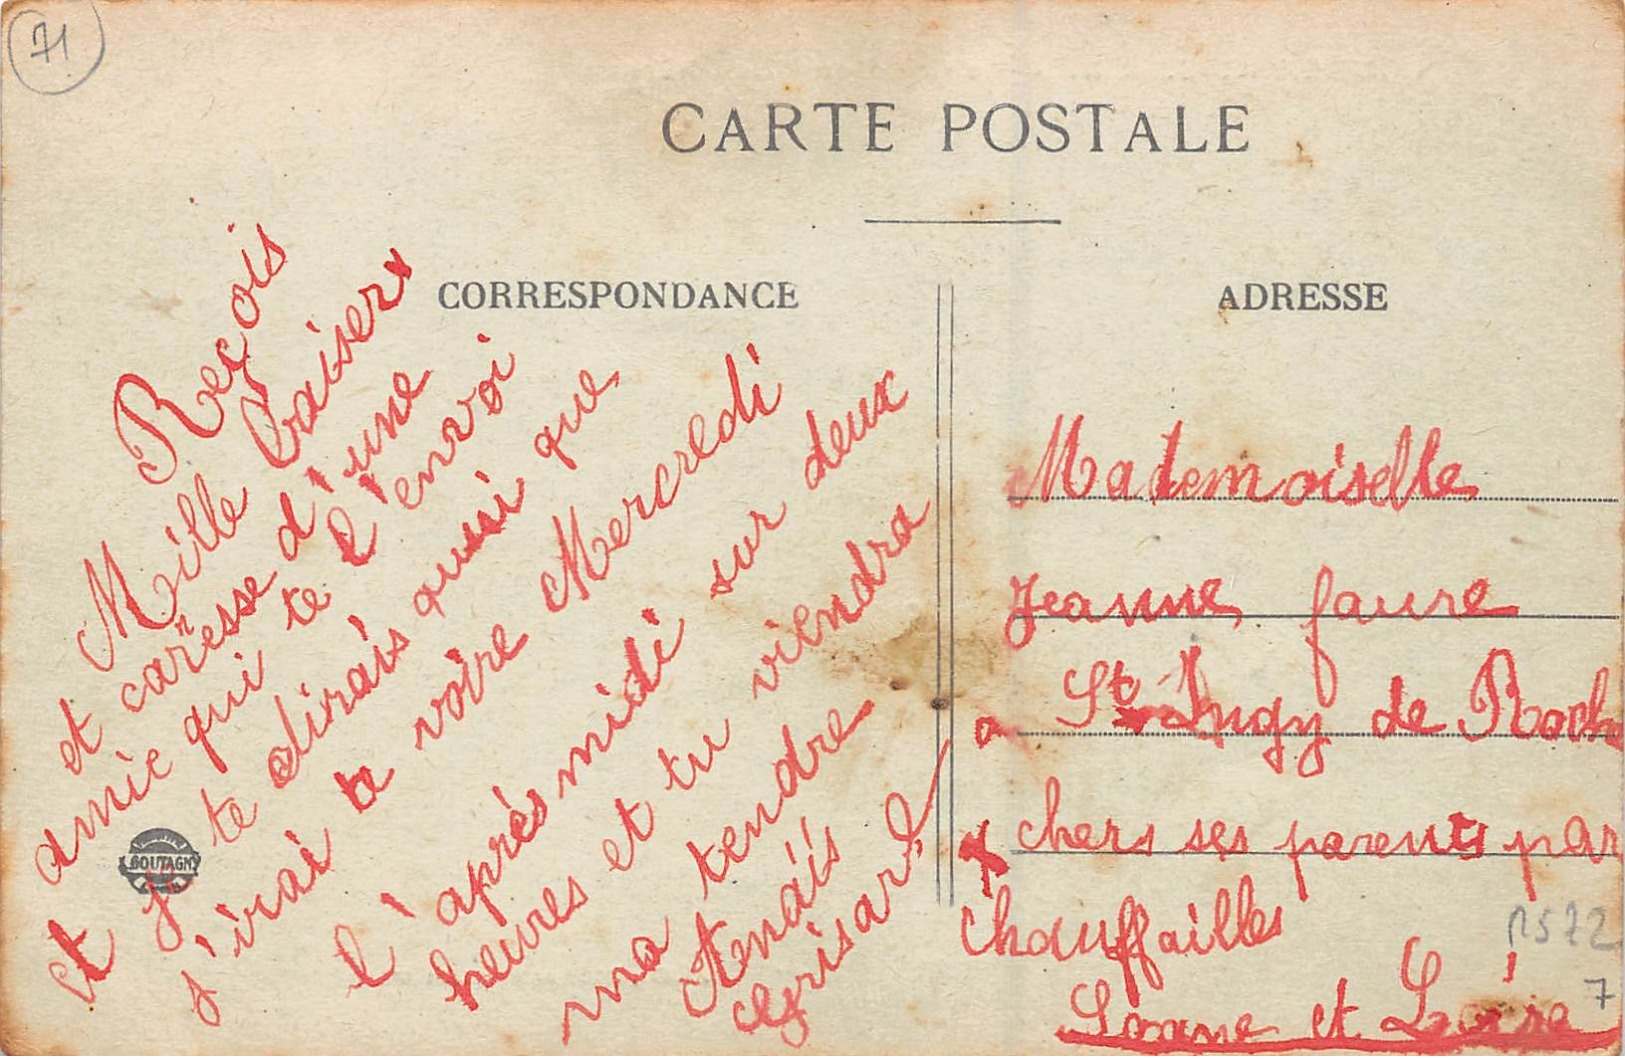 71
CARTE POSTALE
CORRESPONDANCE
ADRESSE
Reçois
Mille baisers
et caresse d'une
amie qui te l'envoi
et je te dirais aussi que
j'irai te voire Mercredi
l'après midi sur deux
heures et tu viendra
ma tendre
Anaïs
Grisard
Mademoiselle
Jeanne faure
a St Ingy de Roch
chers ses parents par
Chauffailles
Saone et Loire
SOUTAGNY
7